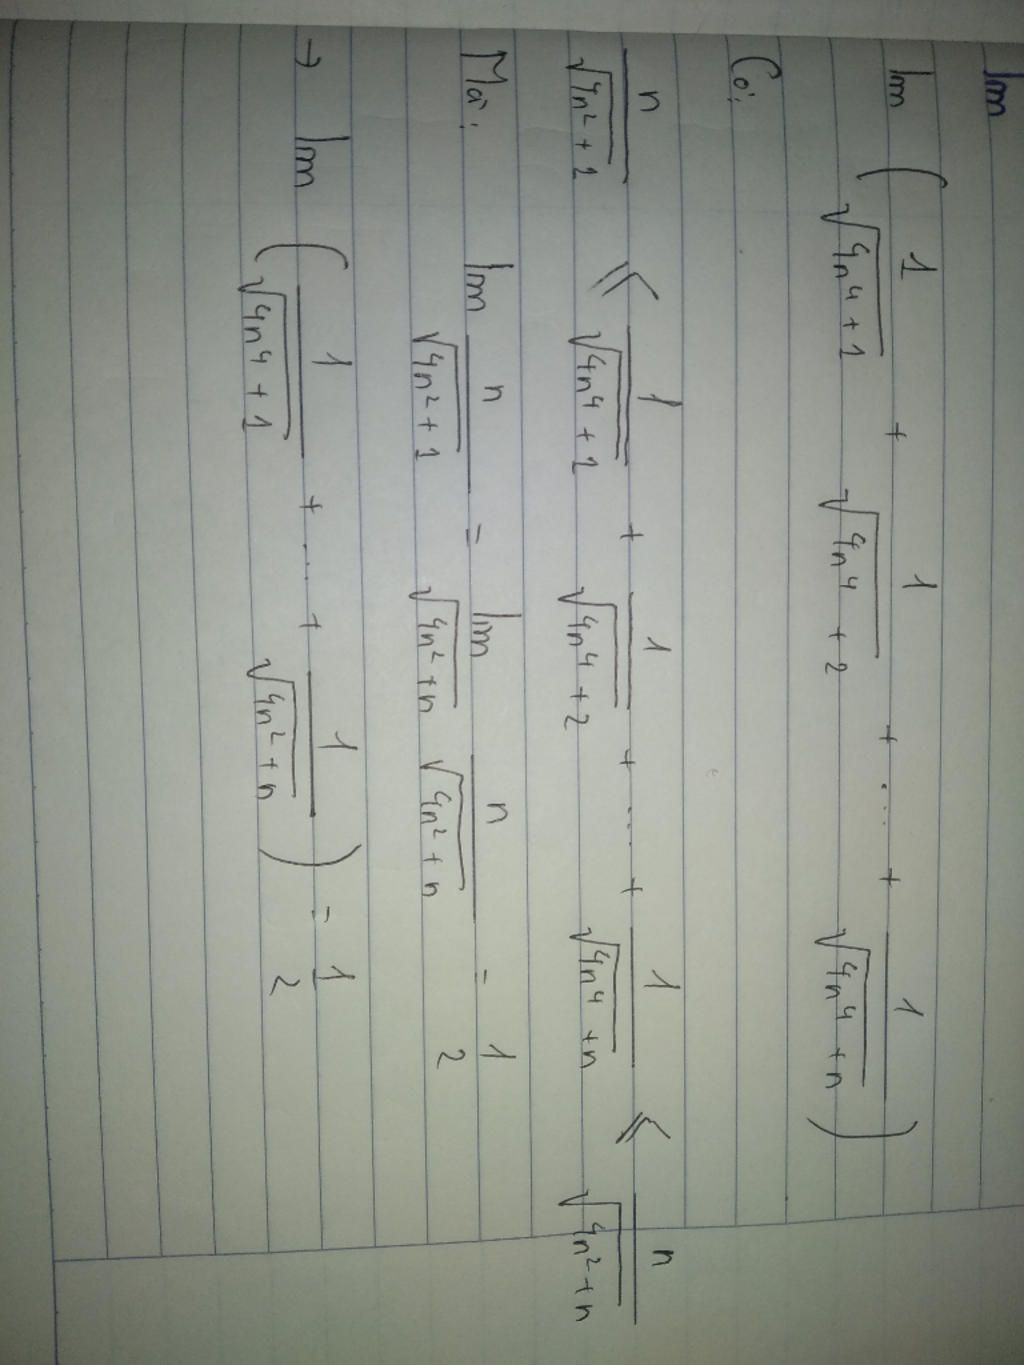 lim
lim ( 1/√(4n⁴+1) + 1/√(4n⁴+2) + ... + 1/√(4n⁴+n) )
Có:
n/√(4n²+1) ≤ 1/√(4n⁴+1) + 1/√(4n⁴+2) + ... + 1/√(4n⁴+n) ≤ n/√(4n²+n)
Mà: lim n/√(4n²+1) = lim √(4n²+n) n/√(4n²+n) = 1/2
→ lim ( 1/√(4n⁴+1) + ... + 1/√(4n²+n) ) = 1/2